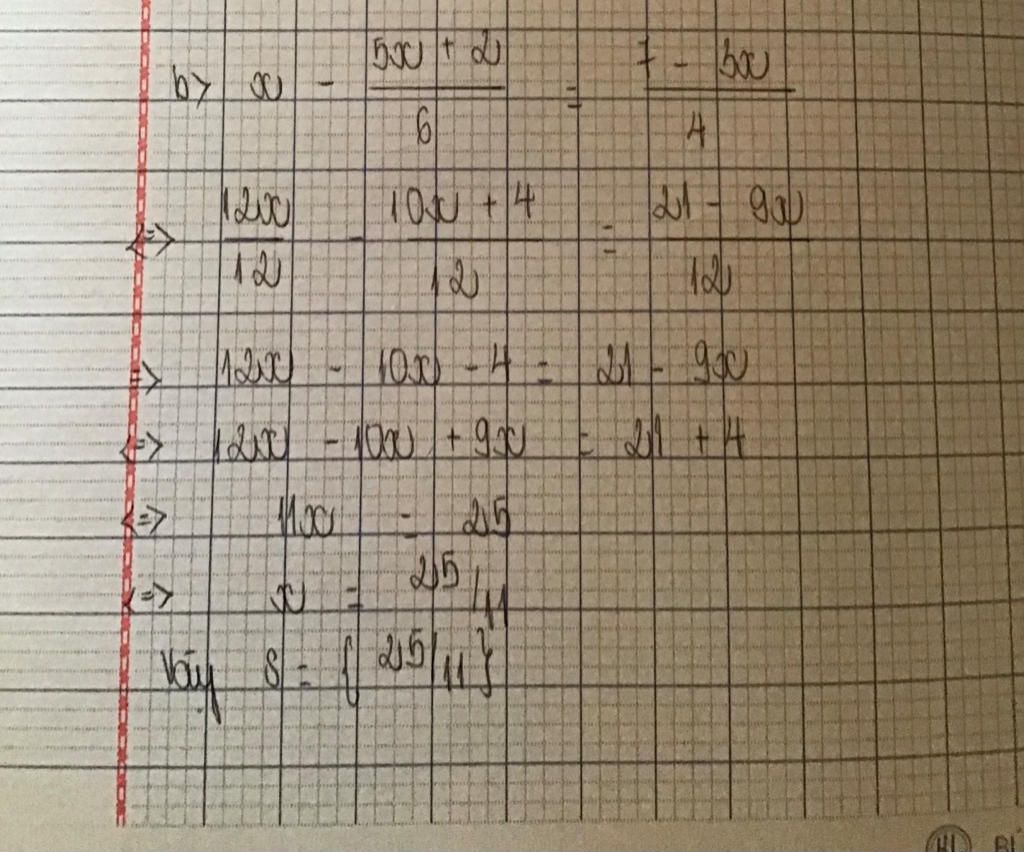 b> x - (5x + 2)/6 = (7 - 3x)/4
<=> 12x/12 - (10x + 4)/12 = (21 - 9x)/12
=> 12x - 10x - 4 = 21 - 9x
<=> 12x - 10x + 9x = 21 + 4
<=> 11x = 25
<=> x = 25/11
Vậy S = { 25/11 }